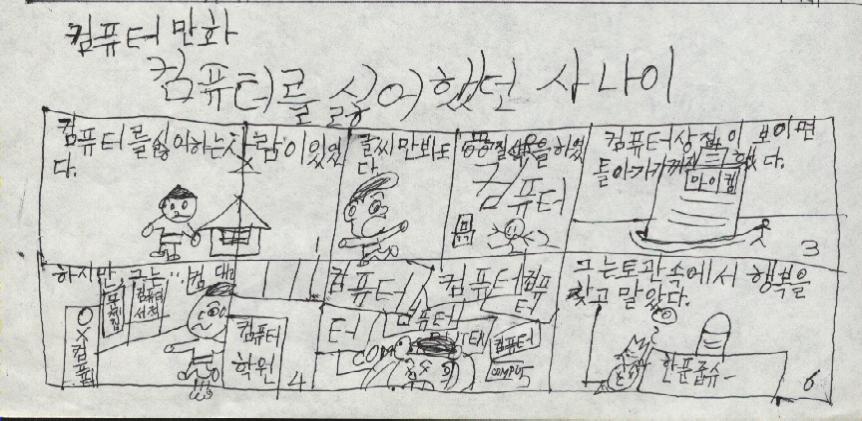 컴퓨터 만화
컴퓨터를 싫어했던 사나이
컴퓨터를 싫어하는 사람이 있었
다.
1
글씨만 봐도
다.
질색을 하였
컴퓨터
컴퓨터 상점이 보이면
돌아가기까지 했다.
마이컴
3
하지만 그는
문제집
컴퓨터
서적
OX컴퓨터
컴퓨터
학원
4
컴퓨터 컴퓨터 컴퓨
터
터
퓨터
COM
컴퓨터
COMPUT
그는 토관속에서 행복을
찾고 말았다.
한푼줍쇼-
6